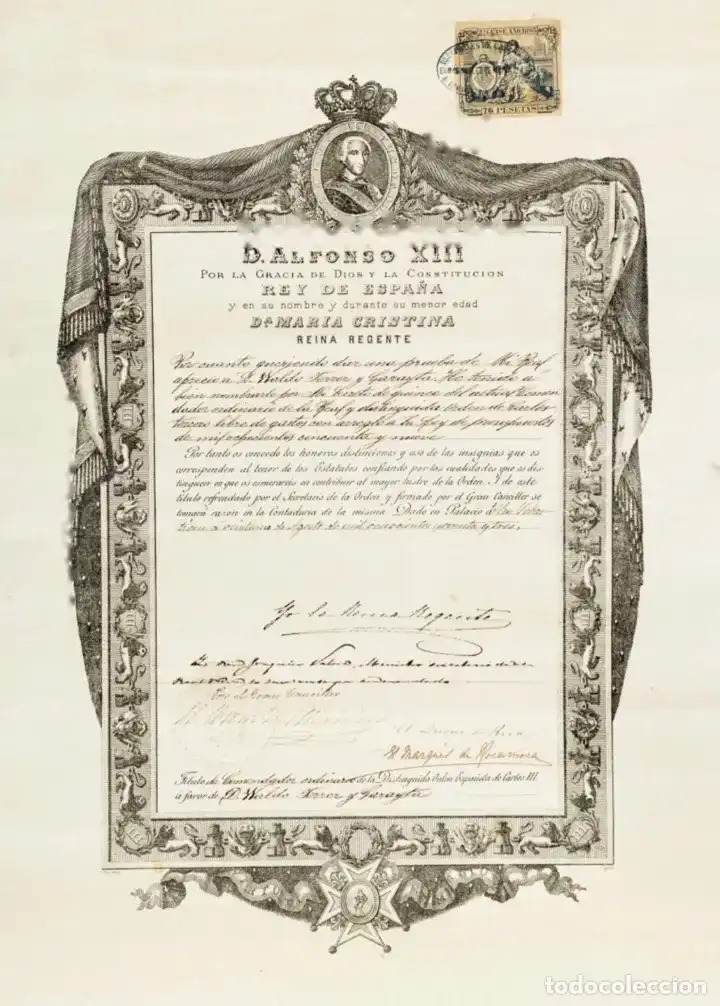 76 PESETAS
D. ALFONSO XIII
POR LA GRACIA DE DIOS Y LA CONSTITUCION
REY DE ESPAÑA
y en su nombre y durante su menor edad
Dª MARIA CRISTINA
REINA REGENTE
Por cuanto queriendo dar una prueba de Mi Real
aprecio á D. Waldo Ferrer y Garayta He tenido á
bien nombrarle por Mi Decreto de quince del actual Comen
dador ordinario de la Real y distinguida orden de Carlos
tercero libre de gastos con arreglo a la ley de presupuestos
de mil ochocientos cincuenta y nueve
Por tanto os concedo los honores distinciones y uso de las insignias que os
corresponden al tenor de los Estatutos confiando por las cualidades que os dis-
tinguen en que os esmerareis en contribuir al mayor lustre de la Orden. Y de este
título refrendado por el Secretario de la Orden y firmado por el Gran Canciller se
tomará razon en la Contaduria de la misma. Dado en Palacio á San Sebas
tian a veintiuno de Agosto de mil ochocientos noventa y tres.
Yo la Reina Regente
Por el Gran Canciller
El Marqués de Rocamora
Título de Comendador ordinario de la Distinguida Orden Española de Carlos III
a favor de D. Waldo Ferrer y Garayta
todocoleccion